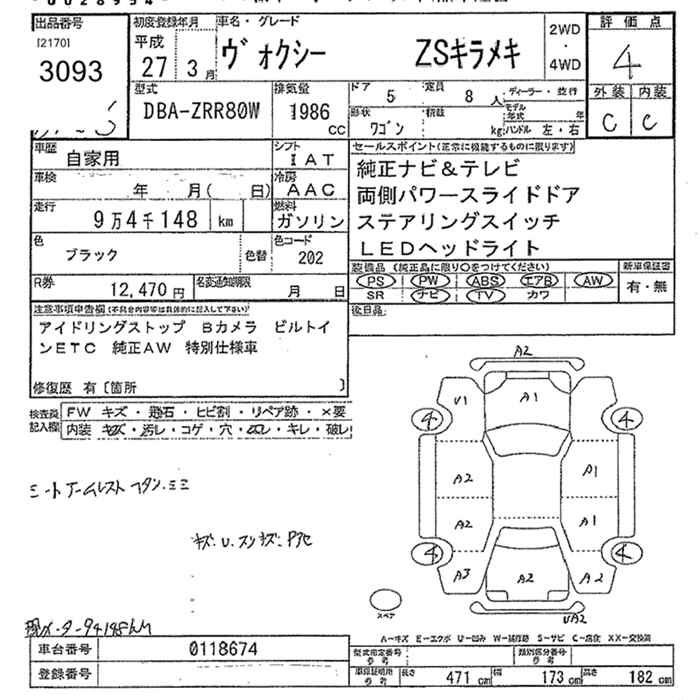 出品番号
[2170]
3093
初度登録年月
平成
27 3月
車名・グレード
ヴォクシー ZSキラメキ
2WD
・
4WD
評価点
4
外装 内装
C C
型式
DBA-ZRR80W
排気量
1986
CC
ドア
5
定員
8 人
ディーラー・並行
形状
ワゴン
積載
kg
モデル年式 年
ハンドル 左・右
車歴
自家用
シフト
IAT
車検
年 月( 日)
冷房
AAC
走行
9万4千148 km
燃料
ガソリン
色
ブラック
色替
色コード
202
R券
12,470 円
名変通知期限
月 日
セールスポイント(正常に機能するものに限ります)
純正ナビ&テレビ
両側パワースライドドア
ステアリングスイッチ
LEDヘッドライト
装備品 (純正品に限り○をつけてください)
PS PW ABS エアB AW
SR ナビ TV カワ
新車保証書
有・無
後日品
注意事項申告欄
アイドリングストップ Bカメラ ビルトイ
ンETC 純正AW 特別仕様車
修復歴 有〔箇所 〕
検査員記入欄
FW キズ・飛石・ヒビ割・リペア跡・×要
内装 キズ・汚レ・コゲ・穴・スレ・キレ・破レ
A2
U1 A1
4 4
A2 A1
A2 A1
4 4
A3 A2 A2
UA2
スペア
シートアームレスト
キズ.U.スリキズ.
A-キズ E-エクボ U-凹み W-補修跡 S-サビ C-腐食 XX-交換済
車台番号 0118674
登録番号
型式指定番号 参考
類別区分番号 参考
車庫証明用 参考
長さ 471 cm 幅 173 cm 高さ 182 cm